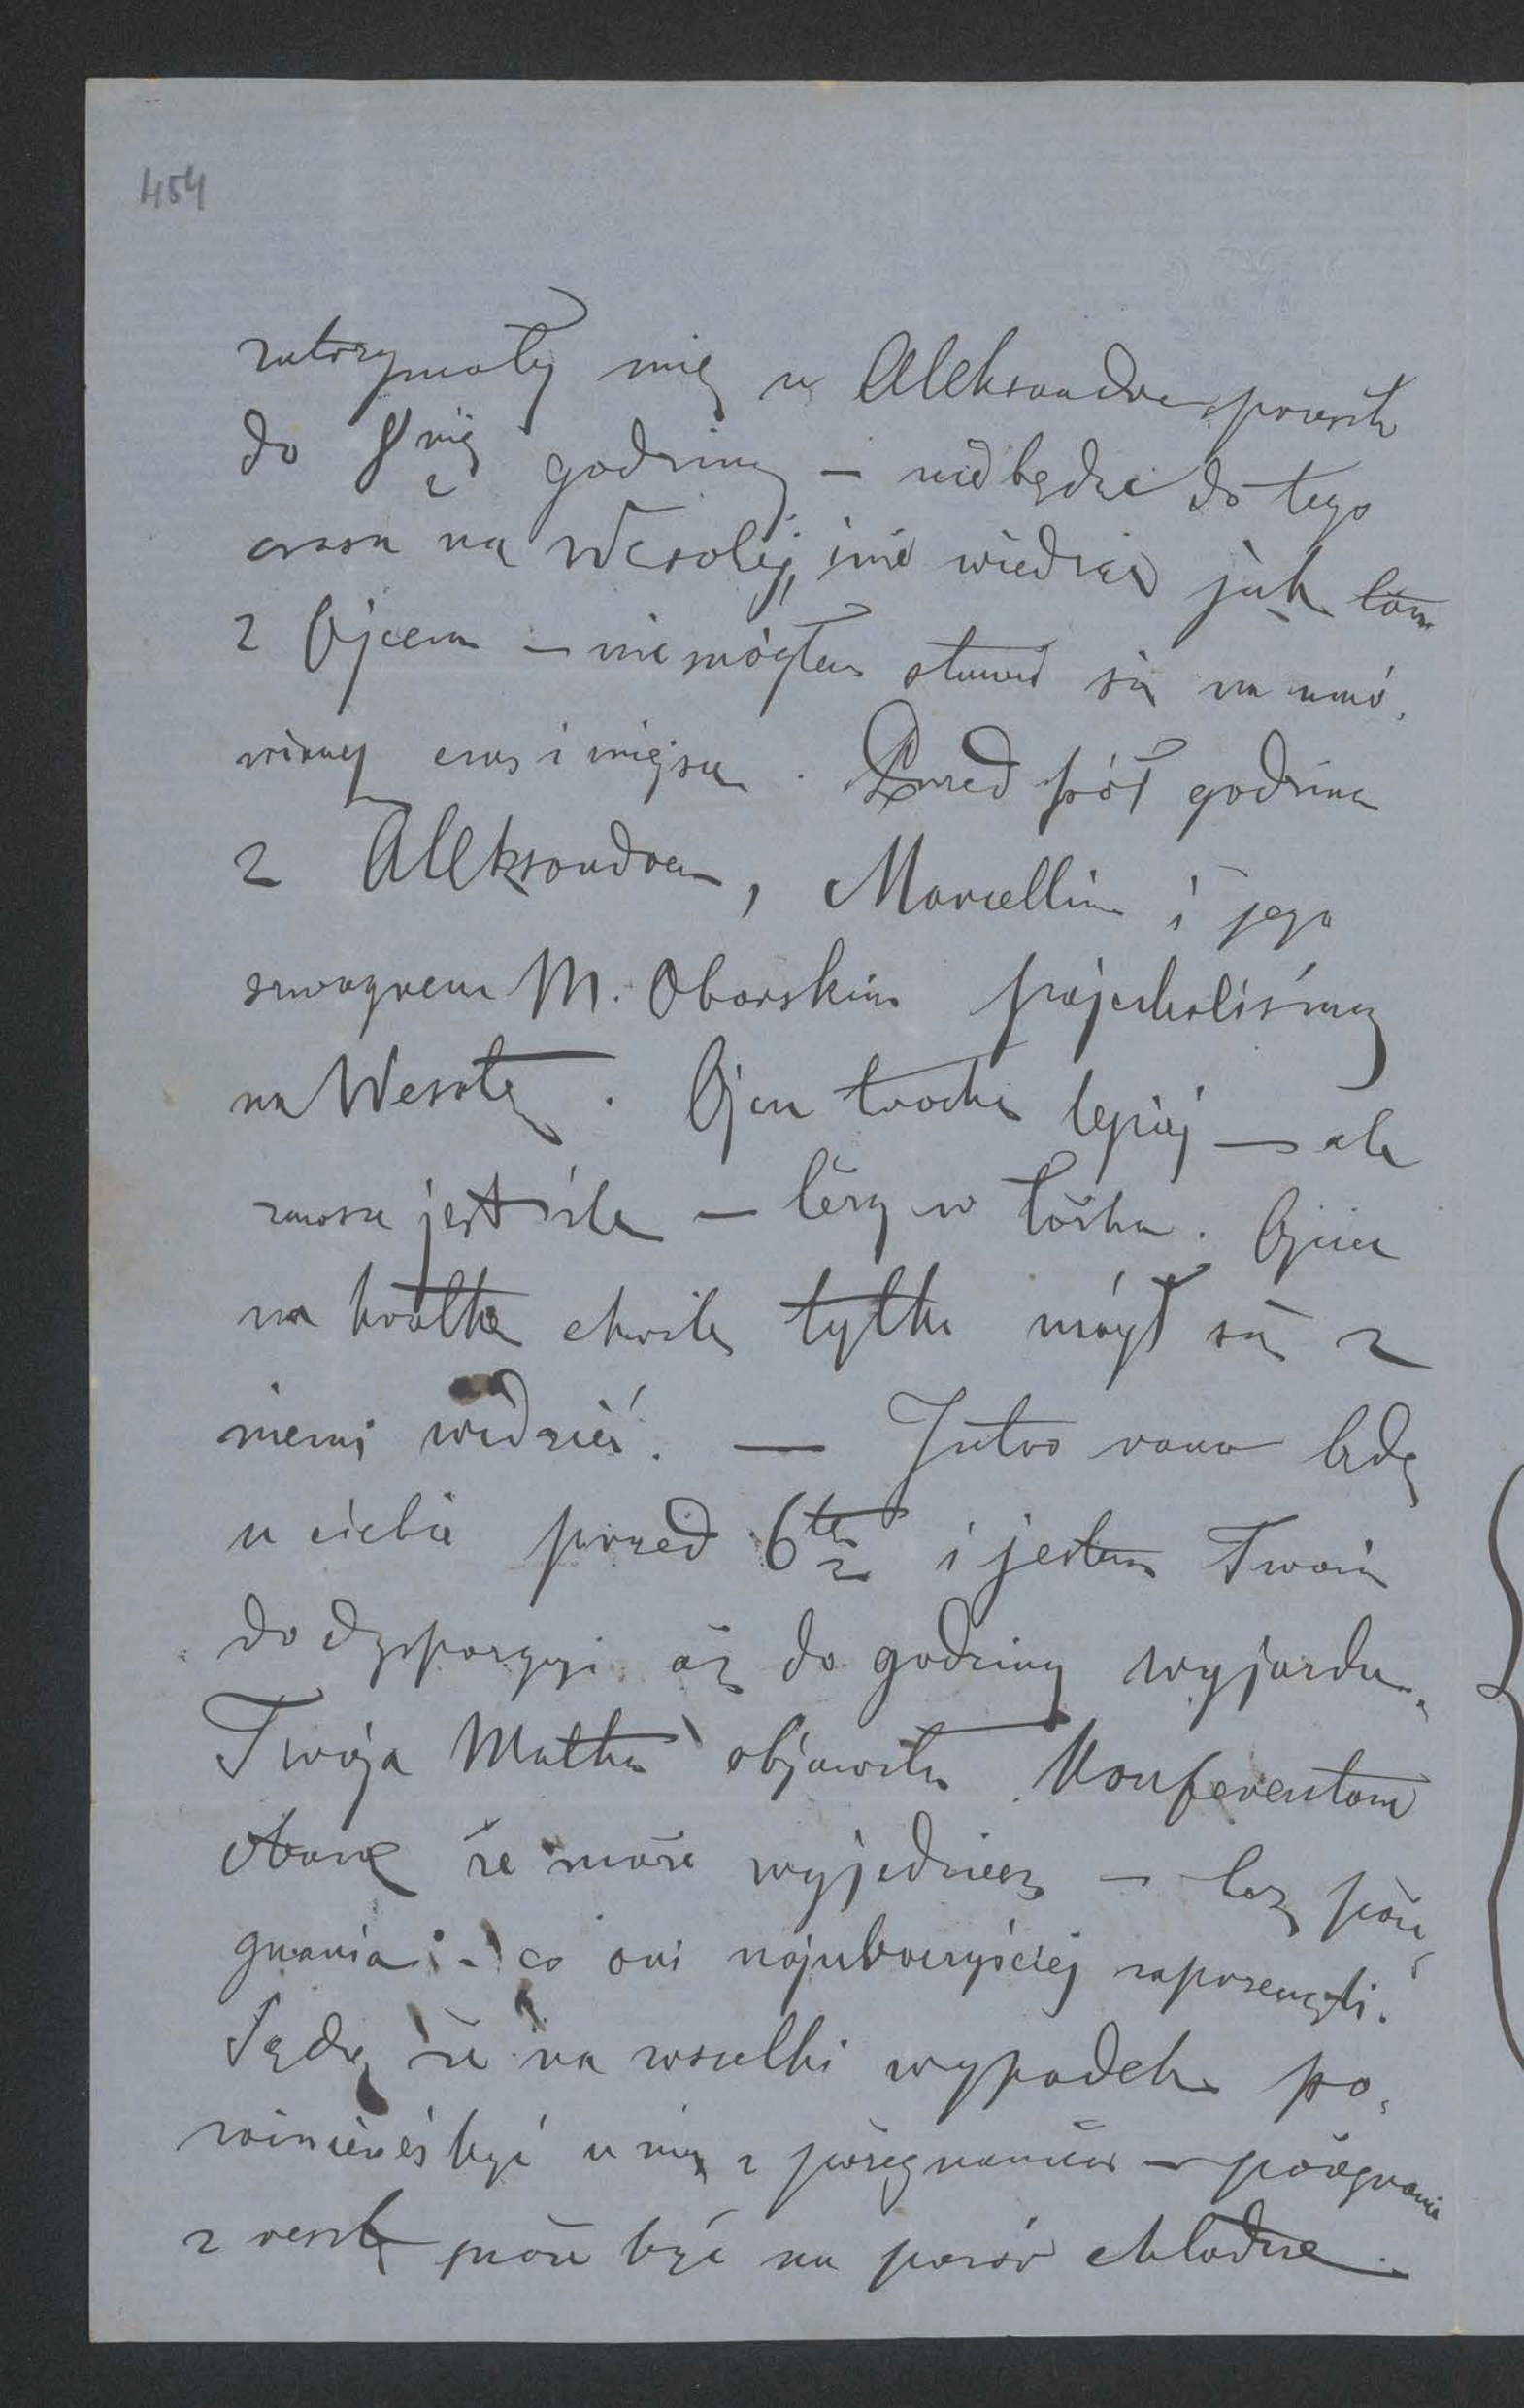 454
zatrzymały mię u Aleksandra przeszło
do godziny – nie będąc do tego
czasu na Wesołej, i nie wiedząc jak tam
z Ojcem – nie mogłem stawić się na umó,
wiony czas i miejsce. Przed pół godziną
z Aleksandrem, Marcellim i jego
szwagrem M. Oborskim pojechaliśmy
na Wesołę. Ojcu trochę lepiej – ale
zawsze jest źle – leży w łóżku. Ojciec
na krótką chwilę tylko mógł się z
niemi widzieć. — Jutro rano będę
u ciebie przed 6tą i jestem Twoim
do dyspozycyi aż do godziny wyjazdu.
Twoja Matka objawiła Konferentom
obawę że może wyjedziesz – bez poże,
gnania – co oni najuroczyściej zaprzeczyli.
Sądzę że na wszelki wypadek po,
winieneś być u niej z pożegnaniem – pożegnanie
z resztą może być na pozór chłodne.